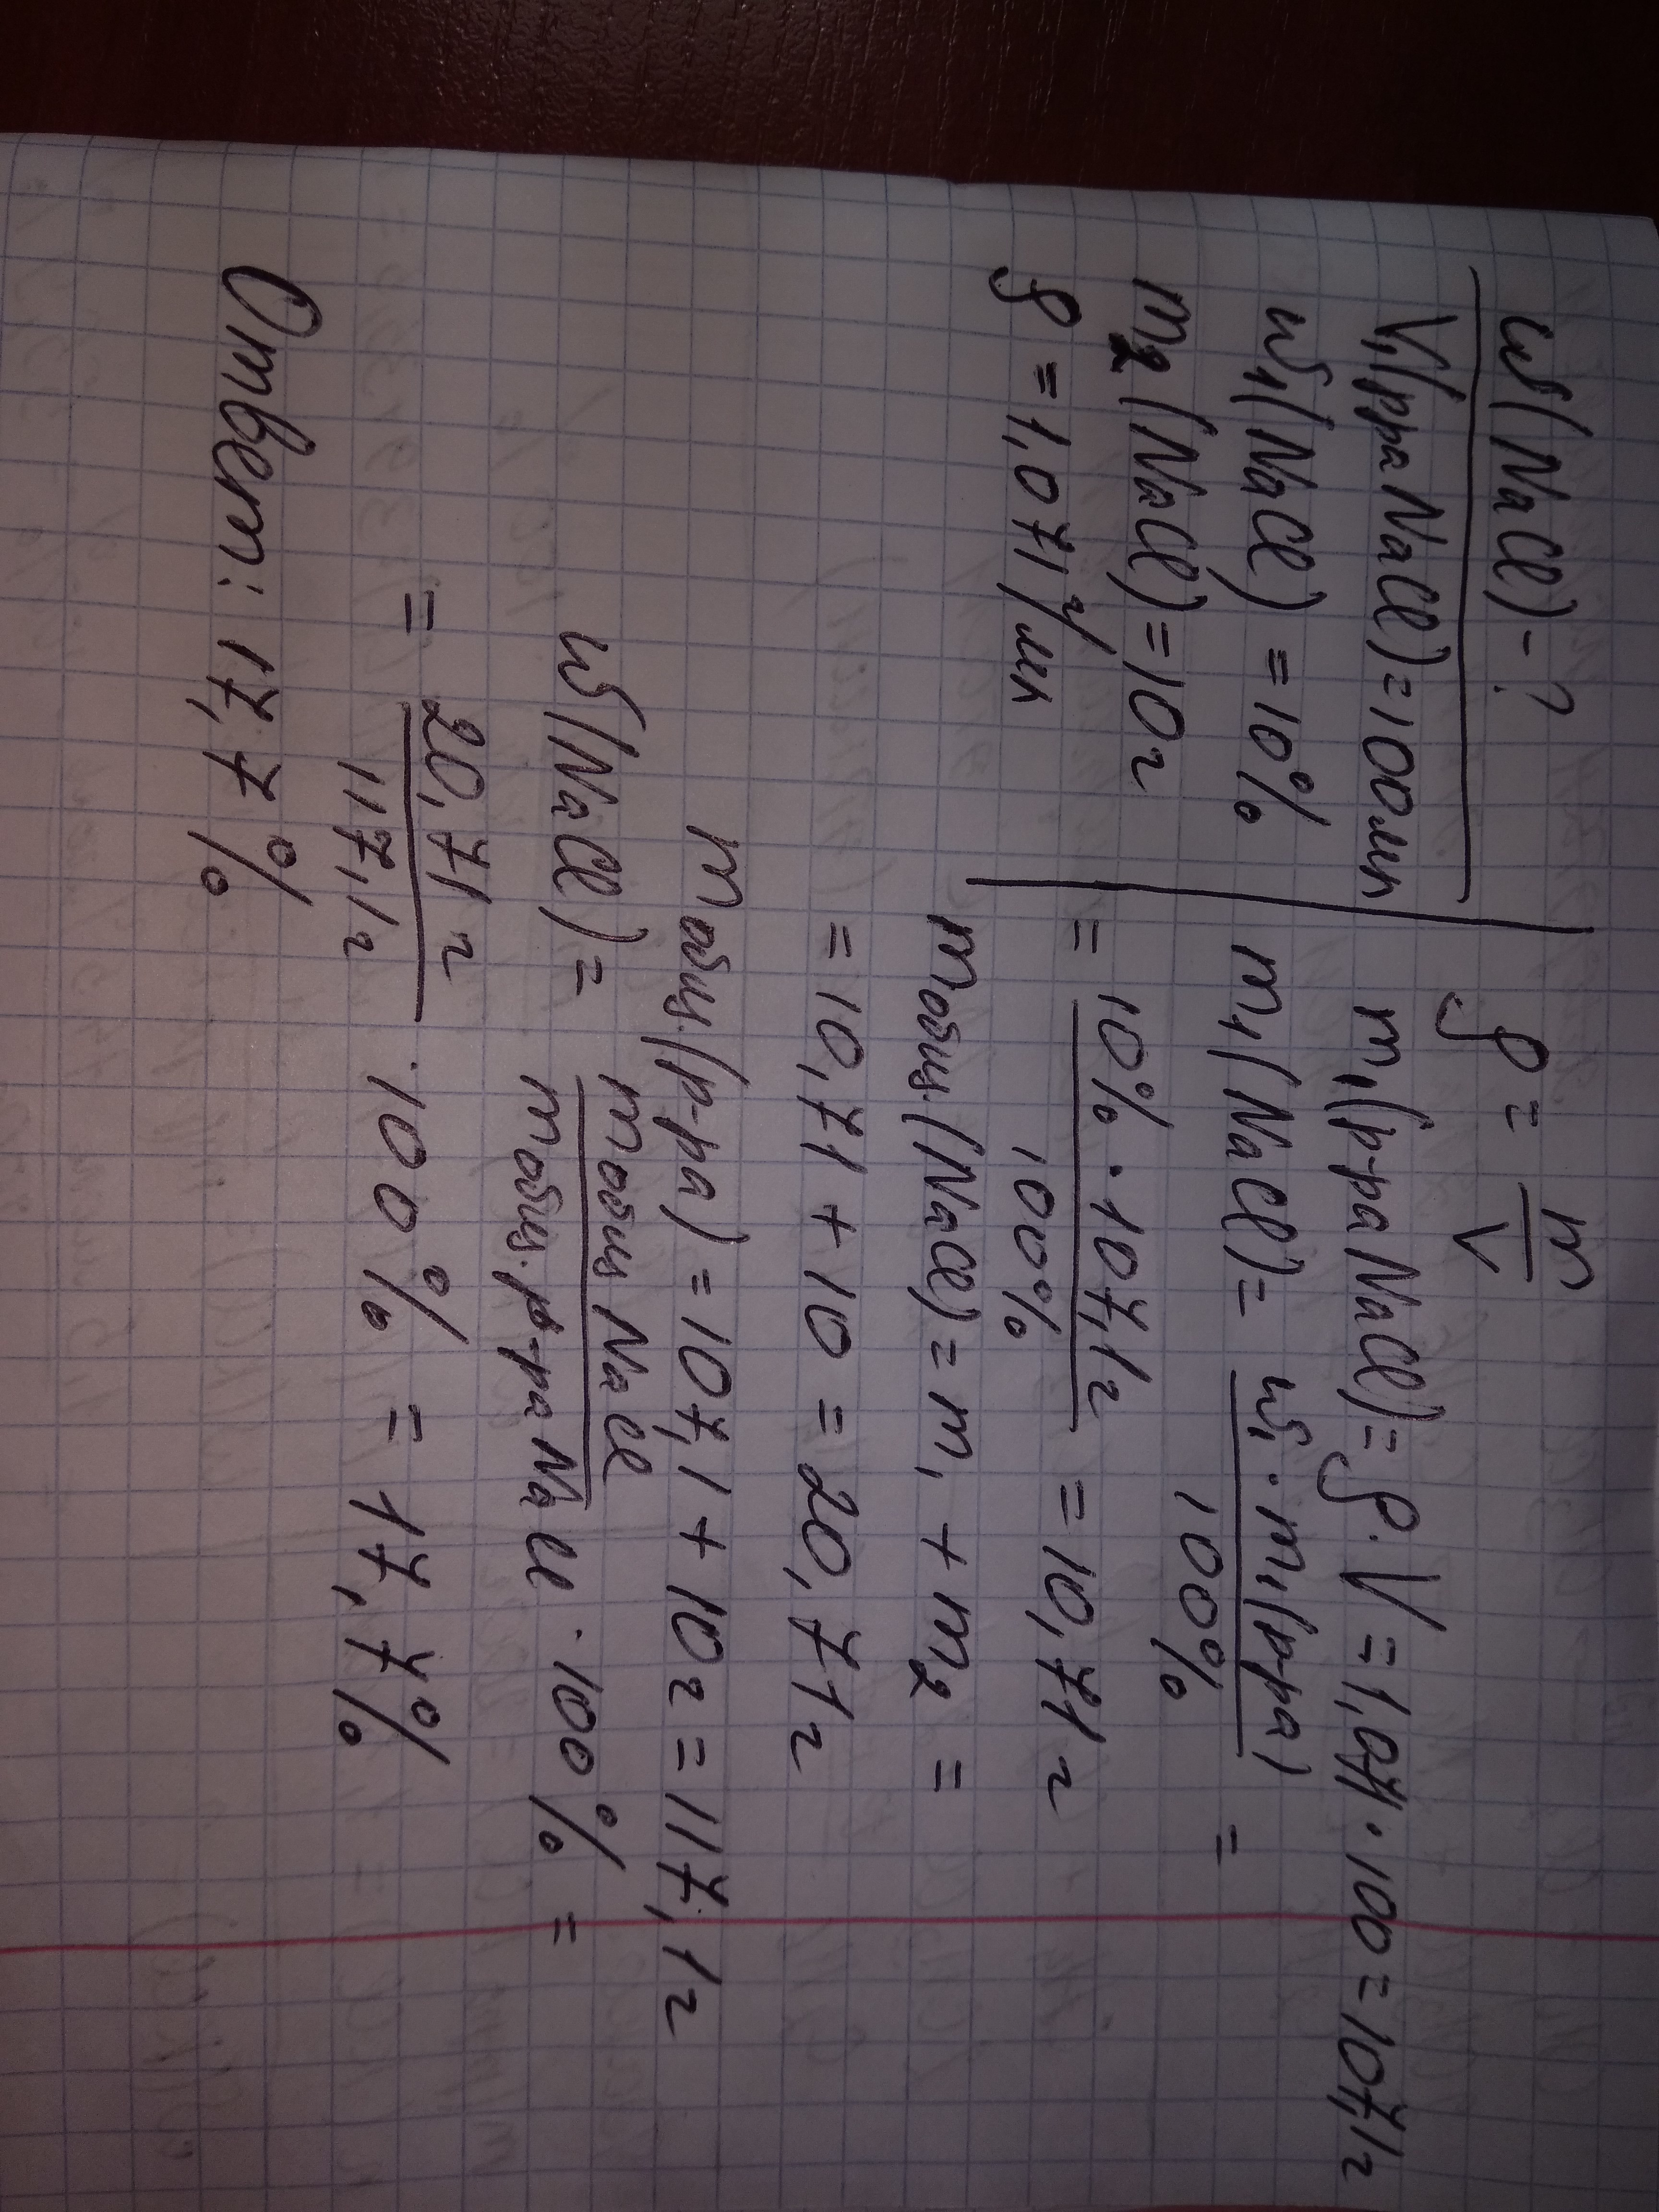 ω(NaCl)-?
V₁(рра NaCl)=100мл
ω₁(NaCl)=10%
m₂(NaCl)=10г
ρ=1,071г/мл
ρ=m/V
m₁(р-ра NaCl)=ρ·V=1,071·100=107,1г
m₁(NaCl)=ω₁·m₁(р-ра)/100% =
=10%·107,1г/100% =10,71г
mобщ.(NaCl)=m₁+m₂=
=10,71+10=20,71г
mобщ.(р-ра)=107,1+10г=117,1г
ω(NaCl)=mобщ NaCl/mобщ.р-ра NaCl·100%=
=20,71г/117,1г·100%=17,7%
Ответ: 17,7%